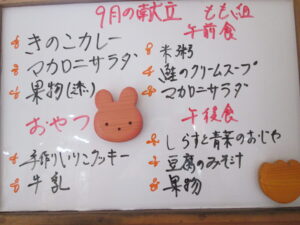 9月の献立
きのこカレー
マカロニサラダ
果物
おやつ
手作りいりこクッキー
牛乳
もも組
午前食
米粥
鮭のクリームスープ
マカロニサラダ
午後食
しらすと青菜のおじや
豆腐のみそ汁
果物